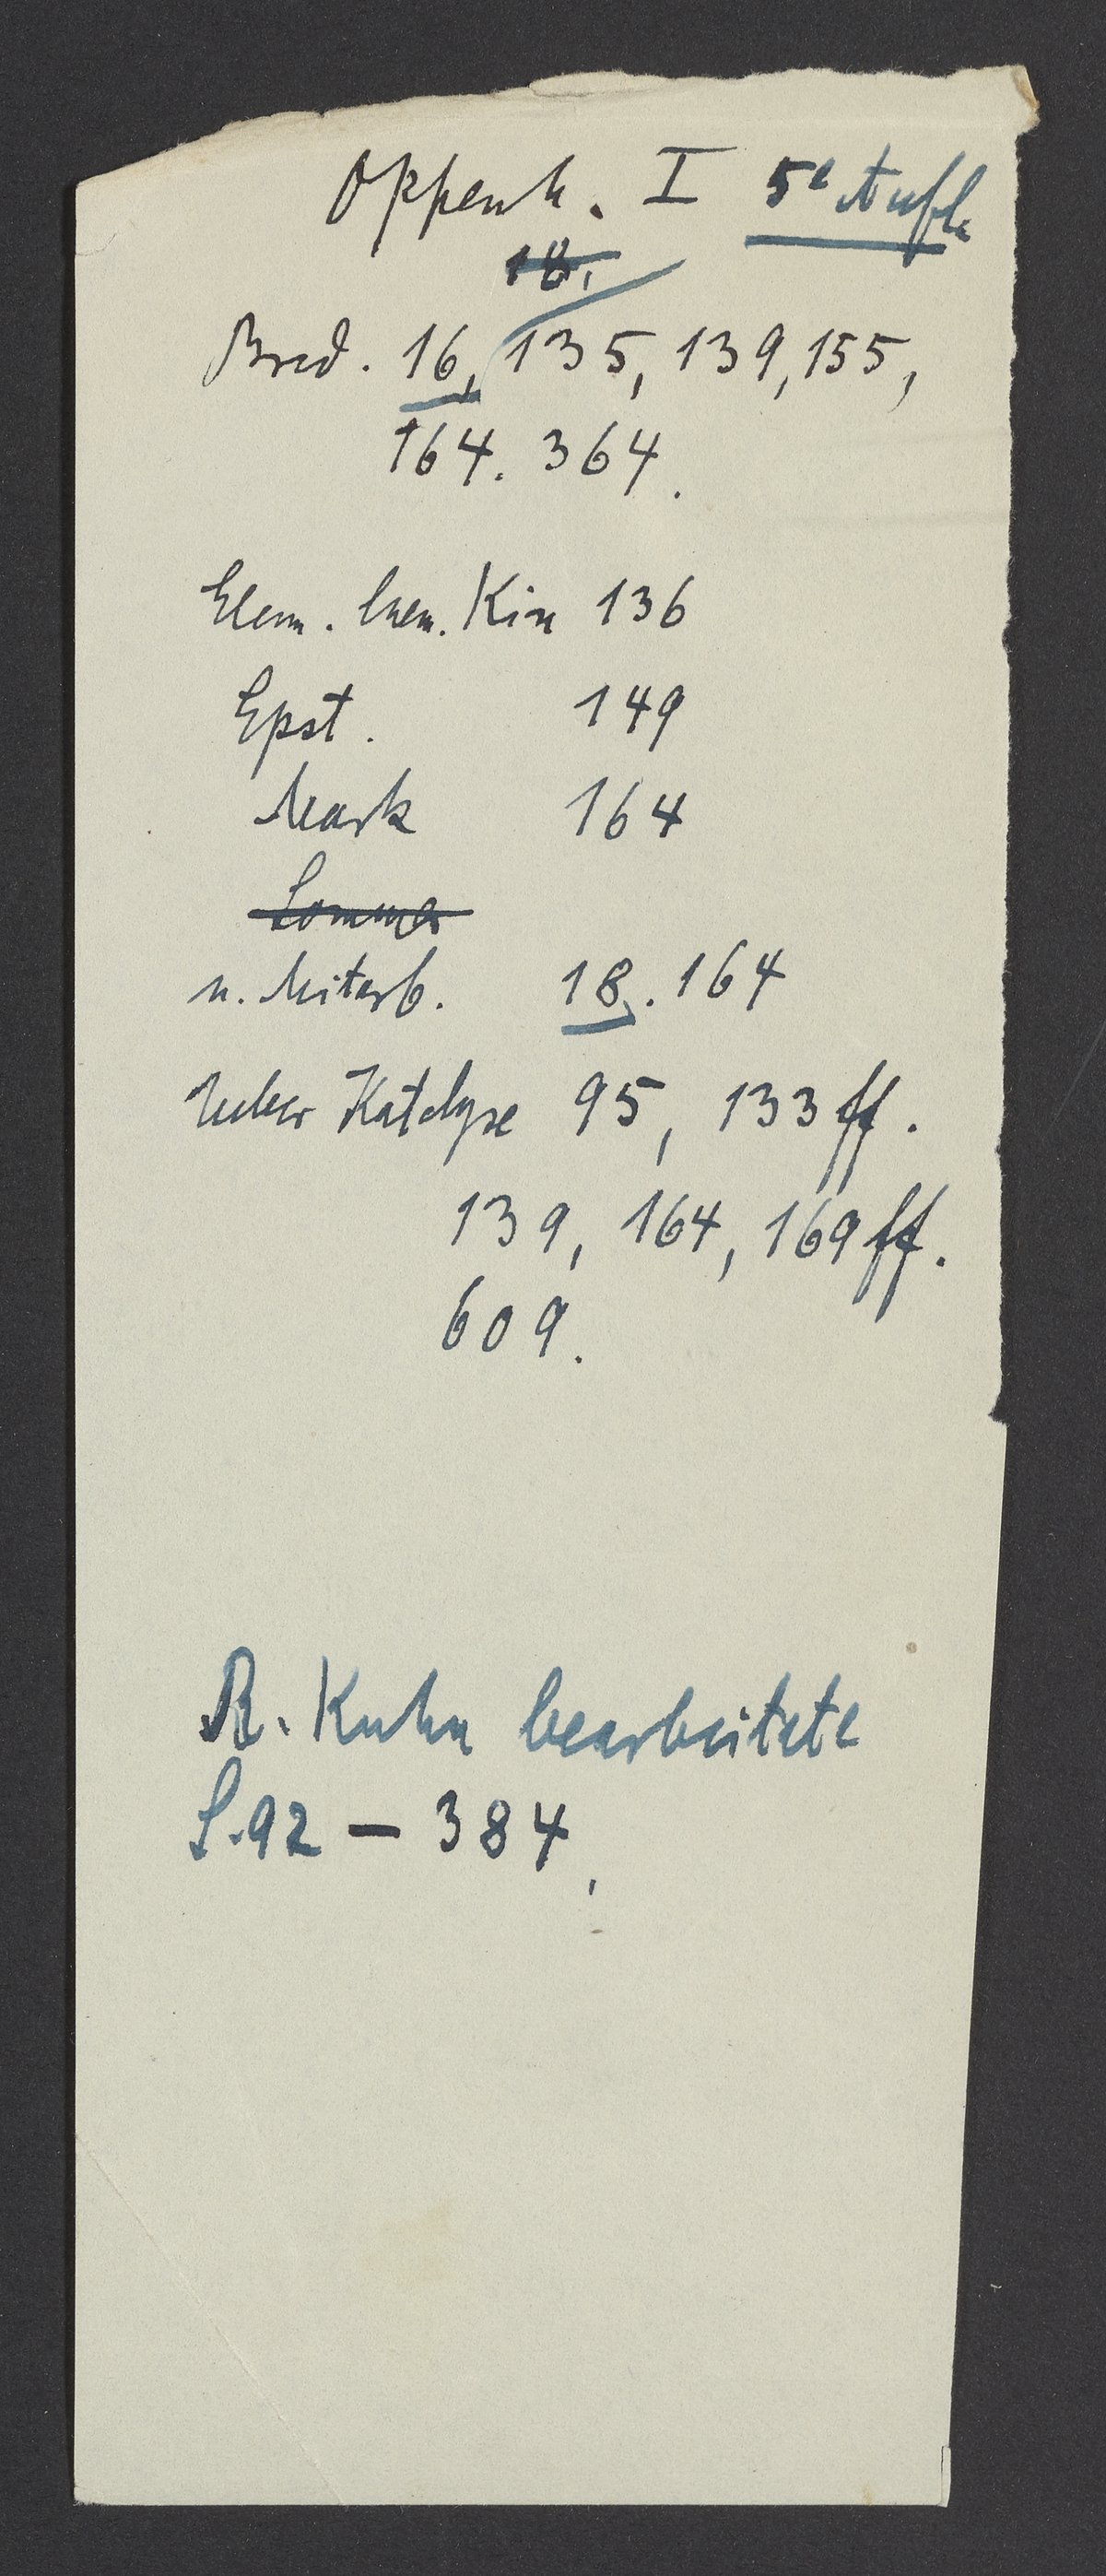 Oppenh. I 5e Aufl.
18.
Bred. 16, 135, 139, 155,
164. 364.
Elem. Chem. Kin 136
Epst. 149
Mark 164
Sommer
u. Mitarb. 18. 164
Ueber Katalyse 95, 133 ff.
139, 164, 169 ff.
609.
R. Kuhn bearbeitete
S. 92 — 384.